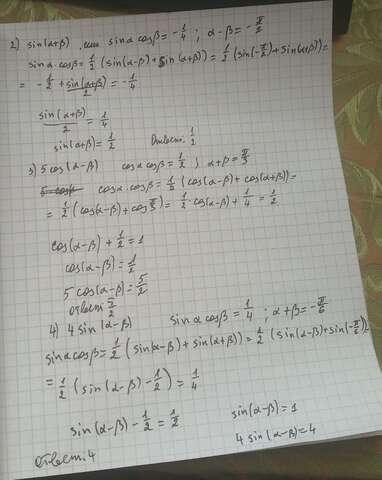 2) sin(α+β), если sinα cosβ = -1/4 ; α-β = -π/2
sinα cosβ = 1/2 (sin(α-β) + sin(α+β)) = 1/2 (sin(-π/2) + sin(α+β)) =
= -1/2 + sin(α+β)/2 = -1/4
sin(α+β)/2 = 1/4
sin(α+β) = 1/2 Ответ: 1/2
3) 5cos(α-β) cosα cosβ = 1/2 ; α+β = π/3
cosα cosβ = 1/2 (cos(α-β) + cos(α+β)) =
= 1/2 (cos(α-β) + cos π/3) = 1/2 · cos(α-β) + 1/4 = 1/2
cos(α-β) + 1/2 = 1
cos(α-β) = 1/2
5 cos(α-β) = 5/2
Ответ: 5/2
4) 4 sin(α-β) sinα cosβ = 1/4 ; α+β = -π/6
sinα cosβ = 1/2 (sin(α-β) + sin(α+β)) = 1/2 (sin(α-β) + sin(-π/6)) =
= 1/2 (sin(α-β) - 1/2) = 1/4
sin(α-β) - 1/2 = 1/2 sin(α-β) = 1
Ответ: 4 4 sin(α-β) = 4